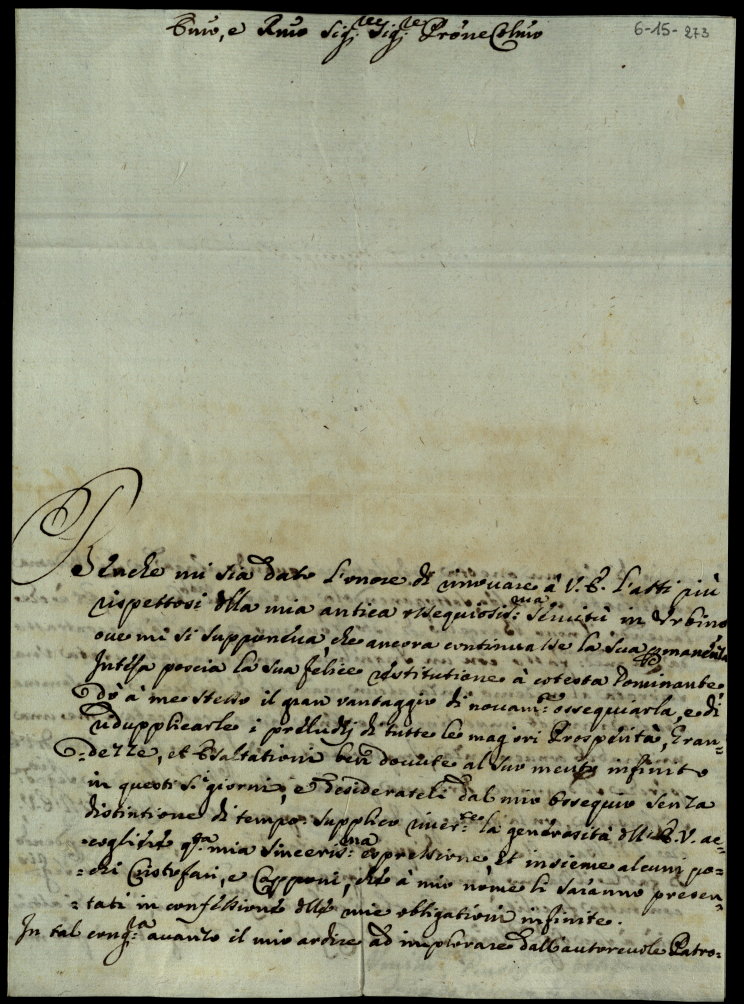 Emo, e Rmo Sig.re Sig.re Prone Colmo
6-15-273
Benche mi sia dato l'onore di rinovare à V. E. l'atti più
rispettosi della mia antica ossequiosis.ma Servitù in Urbino
ove mi si supponeva, che ancora continuasse la sua permanenza
Intesa poscia la sua felice restitutione à cotesta Dominante,
dò à me stesso il gran vantaggio di novam.te ossequiarla, e di
redupplicarle i preludij di tutte le magiori Prosperità, Gran-
-dezze, et Esaltationi ben dovute al suo merito infinito
in questi S.i giorni, e desiderateli dal mio Ossequio senza
distintione di tempo: supplico river.te la generosità dell'E. V. ac-
-cogliere q.ta mia sinceris.ma espressione et insieme alcuni po-
-chi Cristofari, e Capponi, che à mio nome li saranno presen-
-tati in confessione delle mie obligationi infinite.
In tal cong.ra avanzo il mio ardire ad implorare dall'autorevole Patro-